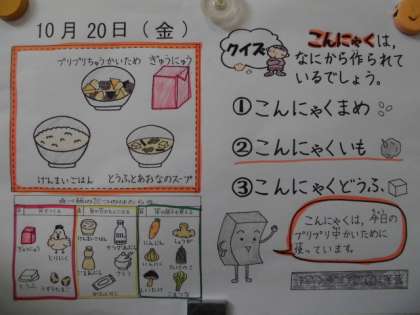 10月20日(金)
プリプリちゅうかいため
ぎゅうにゅう
げんまいごはん
とうふとあおなのスープ
クイズ
こんにゃくは,
なにから作られて
いるでしょう。
①こんにゃくまめ
②こんにゃくいも
③こんにゃくどうふ
こんにゃくは、今日の
プリプリ中かいために
使っています。
ぎゅうにゅう
とりにく
げんまいごはん
にんじん
しょうが
たけのこ
しいたけ